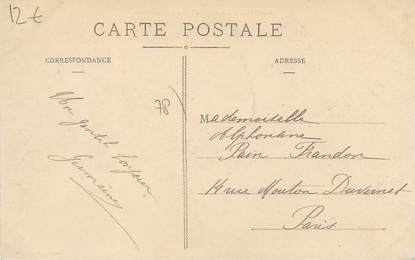 12€
CARTE POSTALE
CORRESPONDANCE
ADRESSE
78
Mademoiselle
Alphonsine
Pain
14 rue Mouton Duvernet
Paris
gentil bonjour
Germaine